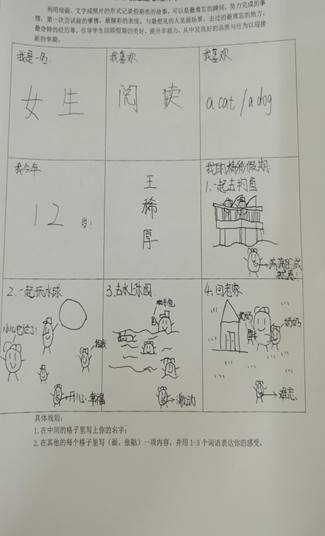 利用绘画、文字或照片的形式记录假期里的故事，可以是最难忘的瞬间、努力完成的事
情、第一次尝试的事情、最精彩的表现、与最想见的人见面场景、去过的最难忘的地方、
最奇特的经历等，引导学生回顾假期的美好，提升幸福力，从中发现好的品质与行为以迎接
新的学期。
我是一名
女生
我喜欢
阅读
我喜欢
a cat / a dog
我今年
12 岁！
王
稀
厚
我的假期
1.一起去钓鱼
2.一起玩水球
小心
开心 幸福
3.去水上乐园
激动
4.回老家
奶奶
难忘
具体规则：
1.在中间的格子里写上你的名字；
2.在其他的每个格子里写（画、张贴）一项内容，并用 1-3 个词语表达你的感受。